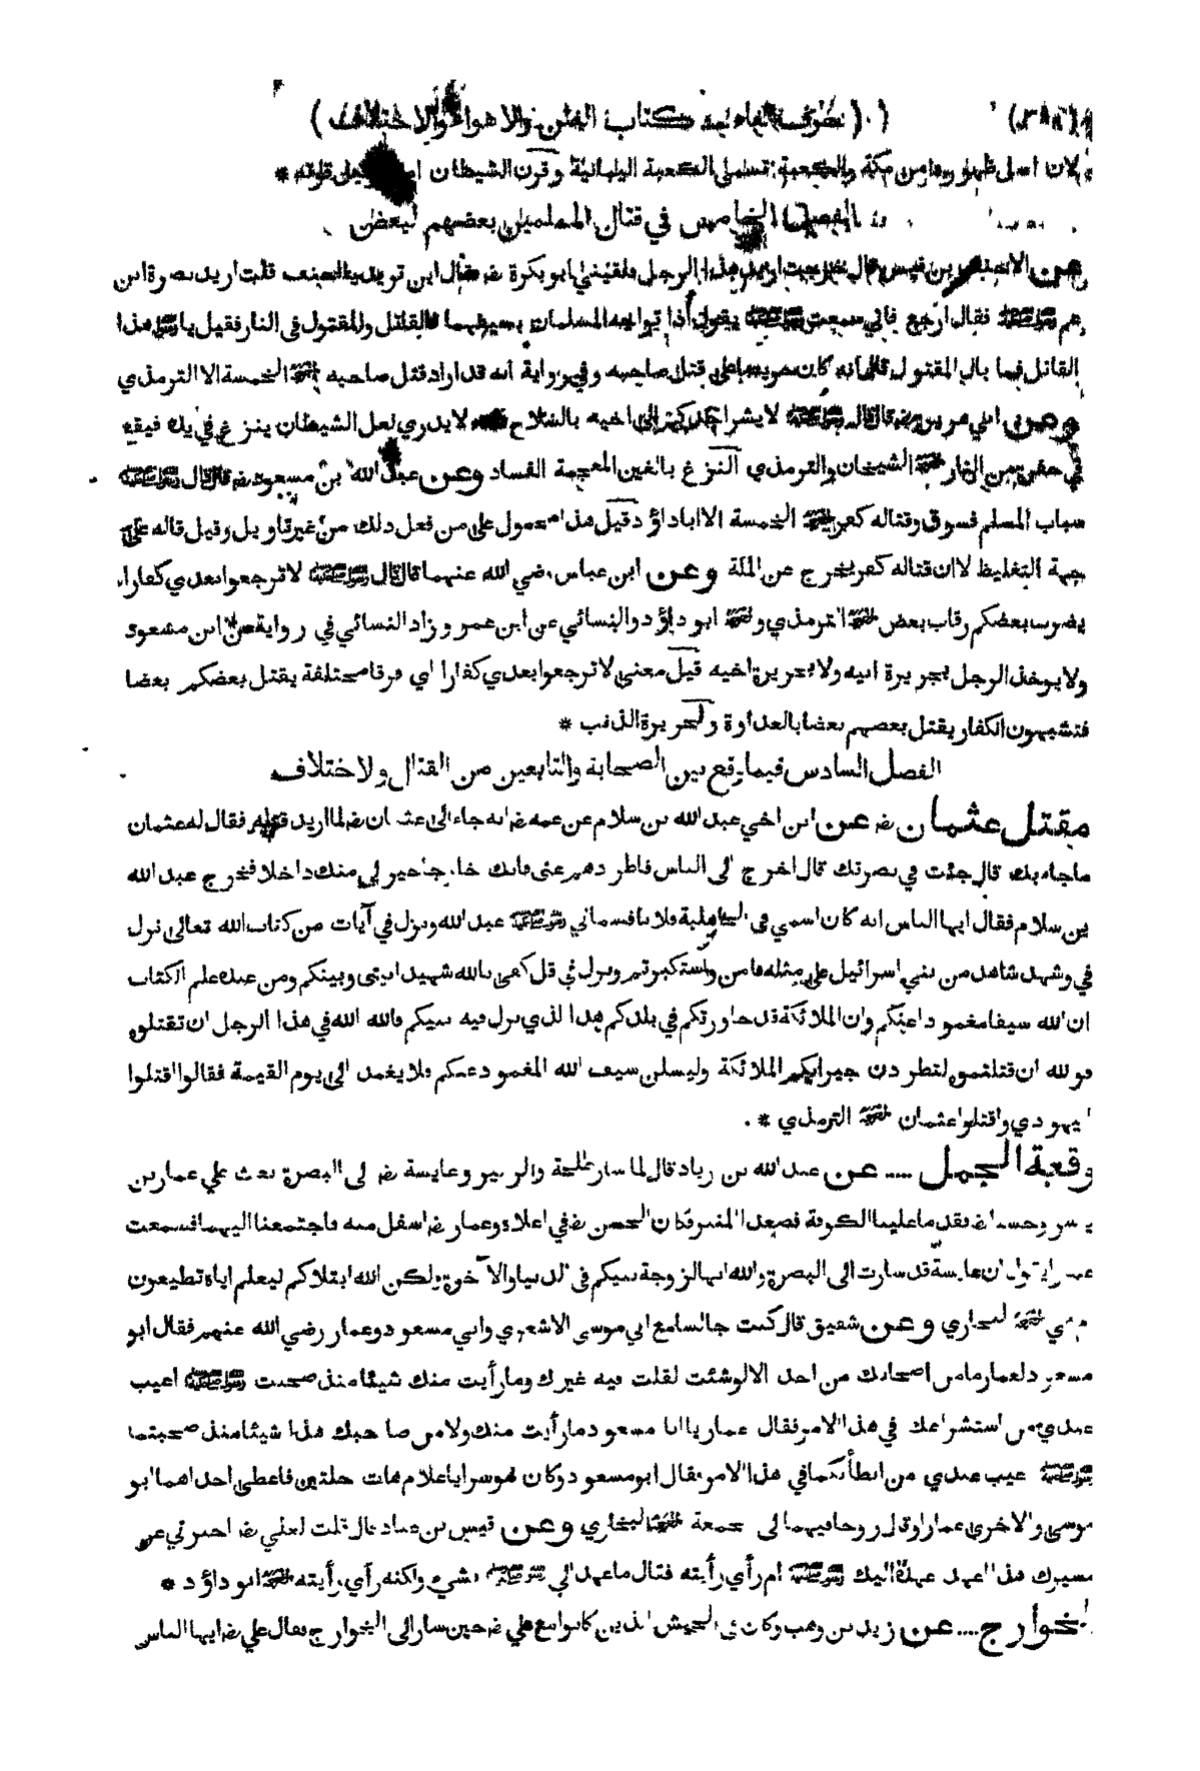 ( حرف الفاء * كتاب الفتن والاهواء والاختلاف )
لان اصل ظهوره من مكة والكعبة تسمى الكعبة اليمانية وقرن الشيطان قوته *
الفصل الخامس في قتال المسلمين بعضهم لبعض
وعن الاحنف بن قيس قال خرجت اريد هذا الرجل فلقيني ابو بكرة رض فقال اين تريد يا احنف قلت اريد نصرة ابن
عم رسول الله صلى الله عليه وسلم فقال ارجع فاني سمعت رسول الله صلى الله عليه وسلم يقول اذا تواجه المسلمان بسيفيهما فالقاتل والمقتول فى النار فقيل يا رسول الله هذا
القاتل فما بال المقتول قال انه كان حريصا على قتل صاحبه وفي رواية انه قد اراد قتل صاحبه الخمسة الا الترمذي
وعن ابي هريرة رض قال قال رسول الله صلى الله عليه وسلم لا يشر احدكم الى اخيه بالسلاح لا يدري لعل الشيطان ينزغ في يده فيقع
في حفرة من النار الشيخان والترمذي النزغ بالغين المعجمة الفساد وعن عبد الله بن مسعود رض قال قال رسول الله صلى الله عليه وسلم
سباب المسلم فسوق وقتاله كفر الخمسة الا ابا داؤد قيل هذا محمول على من فعل ذلك من غير تاويل وقيل قاله على
جهة التغليظ لا ان قتاله كفر يخرج عن الملة وعن ابن عباس رضي الله عنهما قال قال رسول الله صلى الله عليه وسلم لا ترجعوا بعدي كفارا
يضرب بعضكم رقاب بعض الترمذي و ابو داؤد والنسائي عن ابن عمر وزاد النسائي في رواية عن ابن مسعود
ولا يوخذ الرجل بجريرة ابيه ولا بجريرة اخيه قيل معنى لا ترجعوا بعدي كفارا اي فرقا مختلفة يقتل بعضكم بعضا
فتشبهون الكفار يقتل بعضهم بعضا بالعداوة والجريرة الذنب *
الفصل السادس فيما وقع بين الصحابة والتابعين من القتال ولاختلاف
مقتل عثمان رض عن ابن اخي عبد الله بن سلام عن عمه رض انه جاء الى عثمان رض لما اريد قتله فقال له عثمان
ما جاء بك قال جئت في نصرتك قال اخرج الى الناس فاطردهم عني فانك خارجا خير لي منك داخلا فخرج عبد الله
بن سلام فقال ايها الناس انه كان اسمي في الجاهلية فلانا فسماني رسول الله صلى الله عليه وسلم عبد الله ونزل في آيات من كتاب الله تعالى نزل
في وشهد شاهد من بني اسرائيل على مثله فامن واستكبرتم ونزل في قل كفى بالله شهيدا بيني وبينكم ومن عنده علم الكتاب
ان لله سيفا مغمودا عنكم وان الملائكة قد جاورتكم في بلدكم هذا لذي نزل فيه نبيكم فالله الله في هذا الرجل ان تقتلوه
فو لله ان قتلتموه لتطردن جيرانكم الملائكة وليسلن سيف الله المغمود عنكم فلا يغمد الى يوم القيمة فقالوا اقتلوا
اليهودي واقتلوا عثمان الترمذي *
وقعة الجمل .... عن عبد الله بن زياد قال لما سار طلحة والزبير وعايشة رض الى البصرة بعث علي عمار بن
ياسر وحسنا رض فقدما علينا الكوفة فصعدا المنبر فكان الحسن رض في اعلاه وعمار رض اسفل منه فاجتمعنا اليهما فسمعت
عمارا يقول ان عايشة قد سارت الى البصرة والله انها لزوجة نبيكم في الدنيا والآخرة ولكن الله ابتلاكم ليعلم اياه تطيعون
ام هي البخاري وعن شقيق قال كنت جالسا مع ابي موسى الاشعري وابي مسعود وعمار رضي الله عنهم فقال ابو
مسعود لعمار ما من اصحابك من احد الا لو شئت لقلت فيه غيرك وما رأيت منك شيئا منذ صحبت رسول الله صلى الله عليه وسلم اعيب
عندي من استشراعك في هذا الامر فقال عمار يا ابا مسعود ما رأيت منك ولا من صاحبك هذا شيئا منذ صحبتما
رسول الله صلى الله عليه وسلم عيب عندي من ابطأئكما في هذا الامر فقال ابو مسعود وكان موسرا يا غلام هات حلتين فاعطى احداهما ابو
موسى والاخرى عمارا وقال روحا فيهما الى جمعة البخاري وعن قيس بن عباد قال قلت لعلي رض اخبرني عن
مسيرك هذا اعهد عهده اليك رسول الله صلى الله عليه وسلم ام رأي رأيته فقال ما عهد الي رسول الله صلى الله عليه وسلم بشيء ولكنه رأي رأيته ابو داؤد *
الخوارج .... عن زيد بن وهب وكان في الجيش الذين كانوا مع علي رض حين سار الى الخوارج فقال علي رض ايها الناس